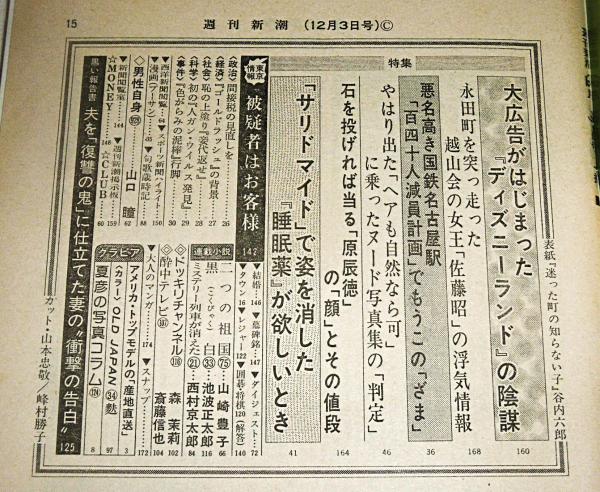 15
週刊新潮 (12月3日号)©
表紙『迷った町の知らない子』谷内六郎
特集
大広告がはじまった
『ディズニーランド』の陰謀
160
永田町を突っ走った
越山会の女王「佐藤昭」の浮気情報
168
悪名高き国鉄名古屋駅
「百四十人減員計画」でもうこの「ざま」
36
やはり出た「ヘアも自然なら可」
に乗ったヌード写真集の「判定」
46
石を投げれば当る「原辰徳
の「顔」とその値段
164
「サリドマイド」で姿を消した
『睡眠薬』が欲しいとき
41
東京情報
被疑者はお客様
142
〈政治〉間接税の見直しを
26
〈経済〉『ゴールドラッシュ』の背景
27
〈社会〉恥の上塗り『妾代返せ』
28
〈科学〉初の『人ガン・ウイルス発見』
30
〈事件〉『色がらみの泥棒』行脚
29
★結婚…146
★墓碑銘…147
★ダイジェスト…72
★タウン16
★レジャー122
★囲碁・将棋120
(解答)140
連載小説
二つの祖国
(75)
山崎豊子
66
黒白
(こくびゃく)
(33)
池波正太郎
116
ミステリー列車が消えた
(21)
西村京太郎
84
★西洋新聞閲覧…64
★スポーツ新聞ハイライト
150
★漫画(プーサン)…65
★句歌歳時記
158
◇男性自身
山口瞳
62
◇ドッキリチャンネル
(110)
森茉莉
102
◇酔中テレビ
(107)
斎藤信也
104
★新聞閲覧室…144
★週刊新潮掲示板
159
☆MONEY…148
☆CLUB
60
★大人のマンガ…174
★スナップ
172
グラビア
アメリカ・トップモデルの「産地直送」
3
〈カラー〉OLD JAPAN(34)
97
夏彦の写真コラム
(124)
8
黒い報告書
夫を「復讐の鬼」に仕立てた妻の“衝撃の告白”
125
カット・山本忠敬/峰村勝子